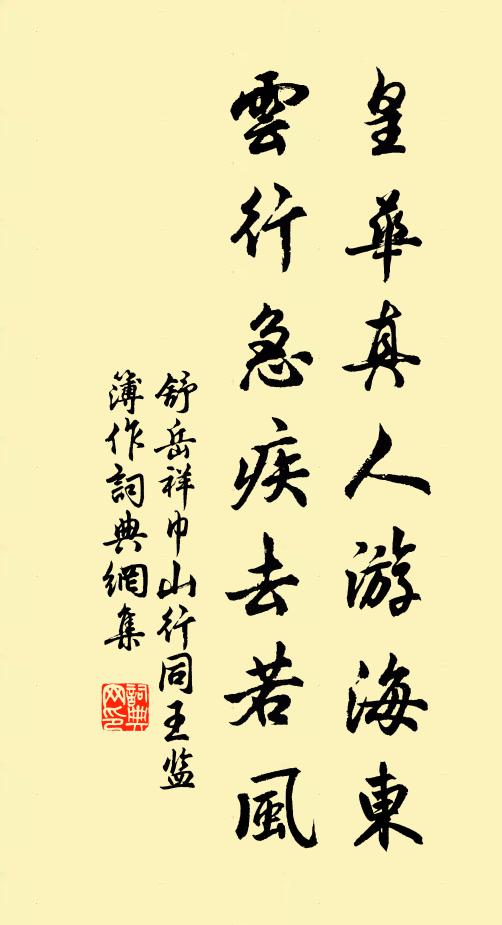 皇華真人游海東
雲行急疾去若風
舒岳祥巾山行同王监
簿作詞典網集
詞典
网印